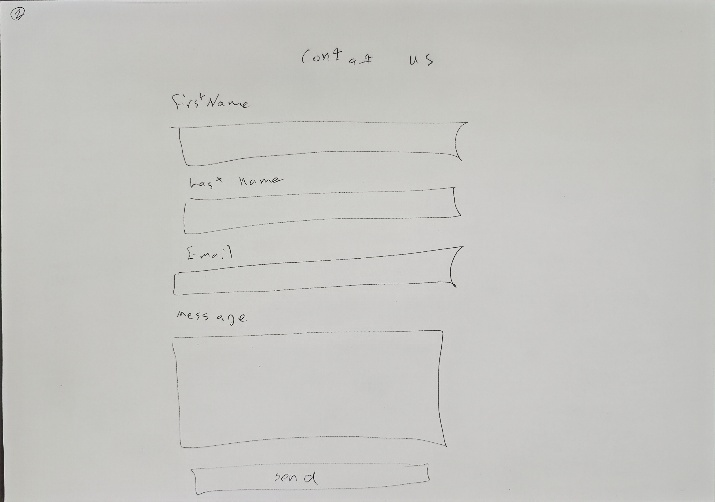 Contact us
First Name
Last Name
Email
message
send